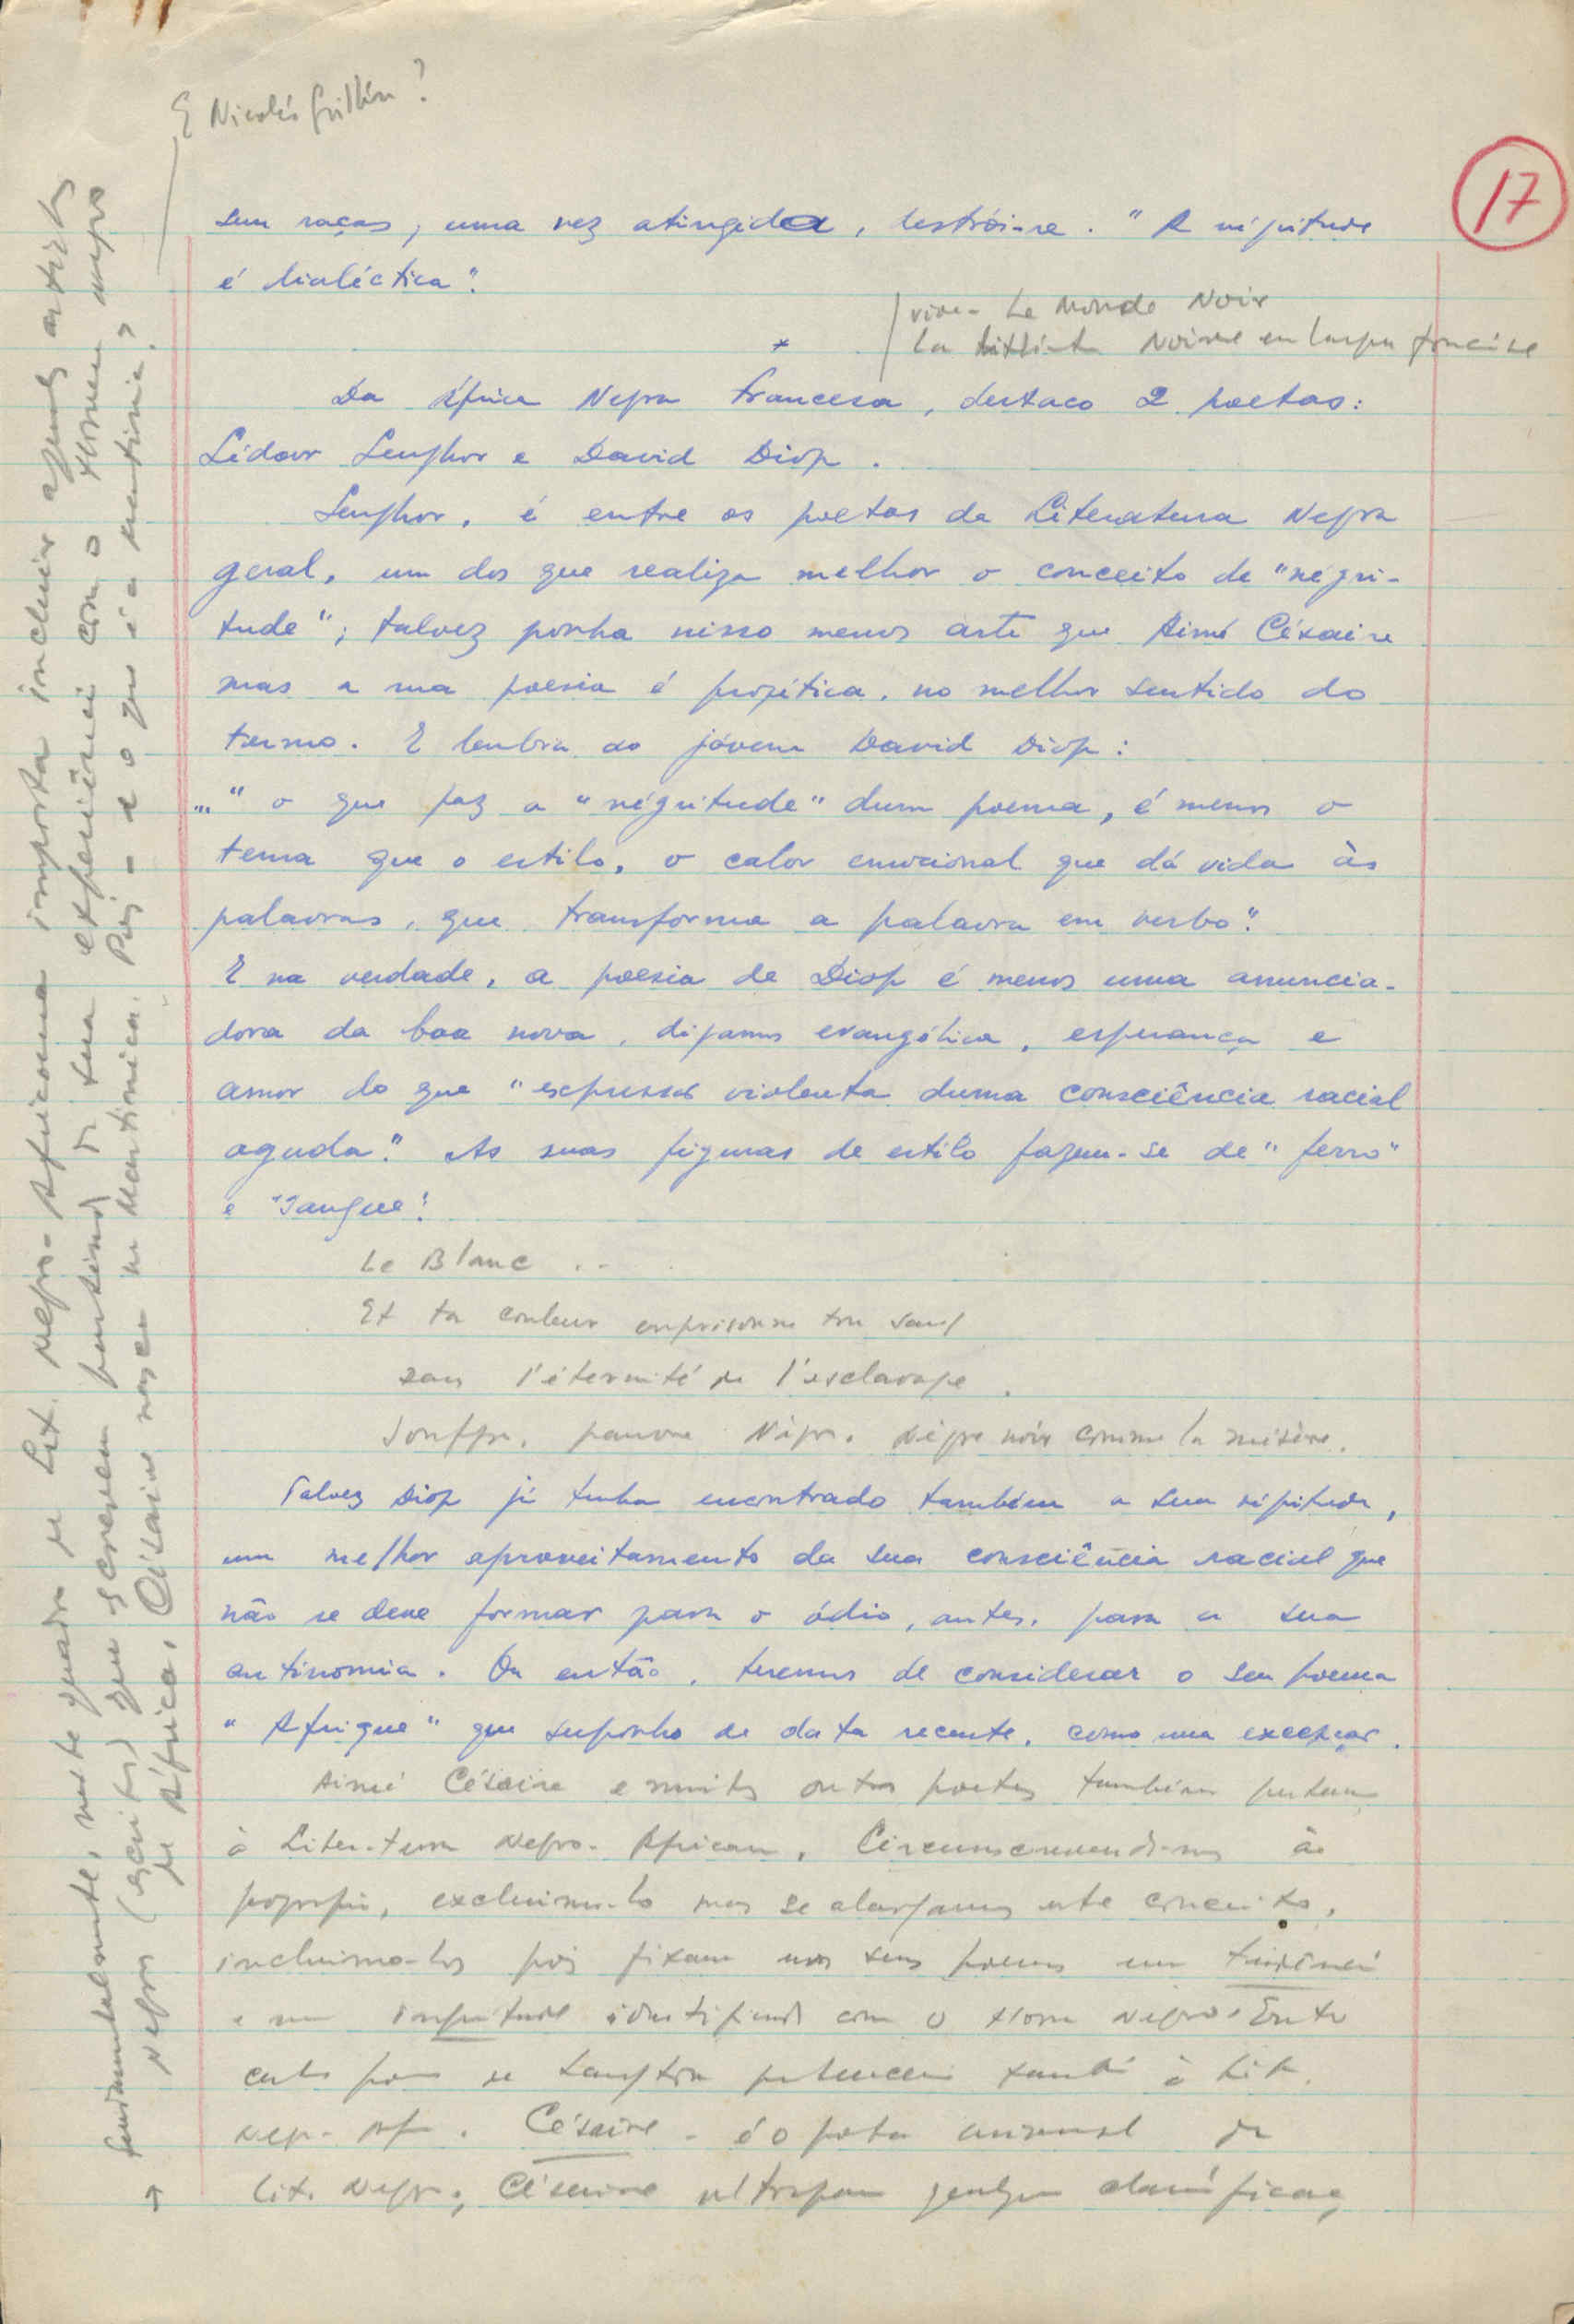 E Nicolás Guillén?
17
sem raças, uma vez atingida, destrói-se. "A négritude
é dialéctica".
vive- Le Monde Noir
La Noire en langue
*
Da África Negra francesa, destaco 2 poetas:
Lédoar Senghor e David Diop.
Senghor, é entre os poetas da Literatura Negra
geral, um dos que realiza melhor o conceito de "négri-
tude"; talvez ponha nisso menos arte que Aimé Césaire
mas a sua poesia é profética, no melhor sentido do
termo. E lembra ao jóvem David Diop:
..." o que faz a "négritude" dum poema, é menos o
tema que o estilo, o calor emocional que dá vida às
palavras, que transforma a palavra em verbo".
E na verdade, a poesia de Diop é menos uma anuncia-
dora da boa nova, digamos evangélica, esperança e
amor do que "expressão violenta duma consciência racial
aguda". As suas figuras de estilo fazem-se de "ferro"
e "sangue".
Le Blanc ..
Et ta couleur emprisonne ton sang
dans l'éternité de l'esclavage.
Souffre, pauvre Nègre, Nègre noir comme la misère.
Talvez Diop já tenha encontrado também a sua négritude,
um melhor aproveitamento da sua consciência racial que
não se deve formar para o ódio, antes, para a sua
antinomia. Ou então, teremos de considerar o seu poema
"Afrique" que suponho de data recente, como uma excepção.
Aimé Césaire e muitos outros poetas também
à Literatura Negro-Africana. Circunscrevendo-nos à
geografia, excluimo-lo mas se alargamos este conceito,
incluimo-los pois fixam nos seus poemas um
e um identificando com o Homem Negro. Entre
de Langston também à Lit.
Neg- Af. Césaire - é o poeta universal da
Lit. Negra; Césaire ultrapassa qualquer classificação
→ fundamentalmente, neste quadro de Lit. Negro-Africana importa incluir aqueles artistas
Negros (escritos) que escrevem partindo de sua experiência com o Homem negro
de África. Césaire nasceu na Martinica. Pois - e o que é a Martinica?